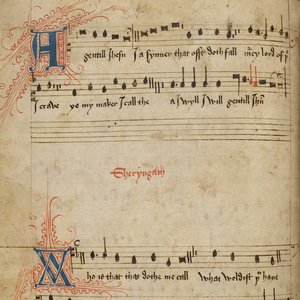 A gentill Jhesu I a synner that offt doth fall mercy lord of þe
I crave ye my maker I call the a I wyll I will gentill Jhu
Sheryngam
C
Who is that that dothe me call what woldist þu have